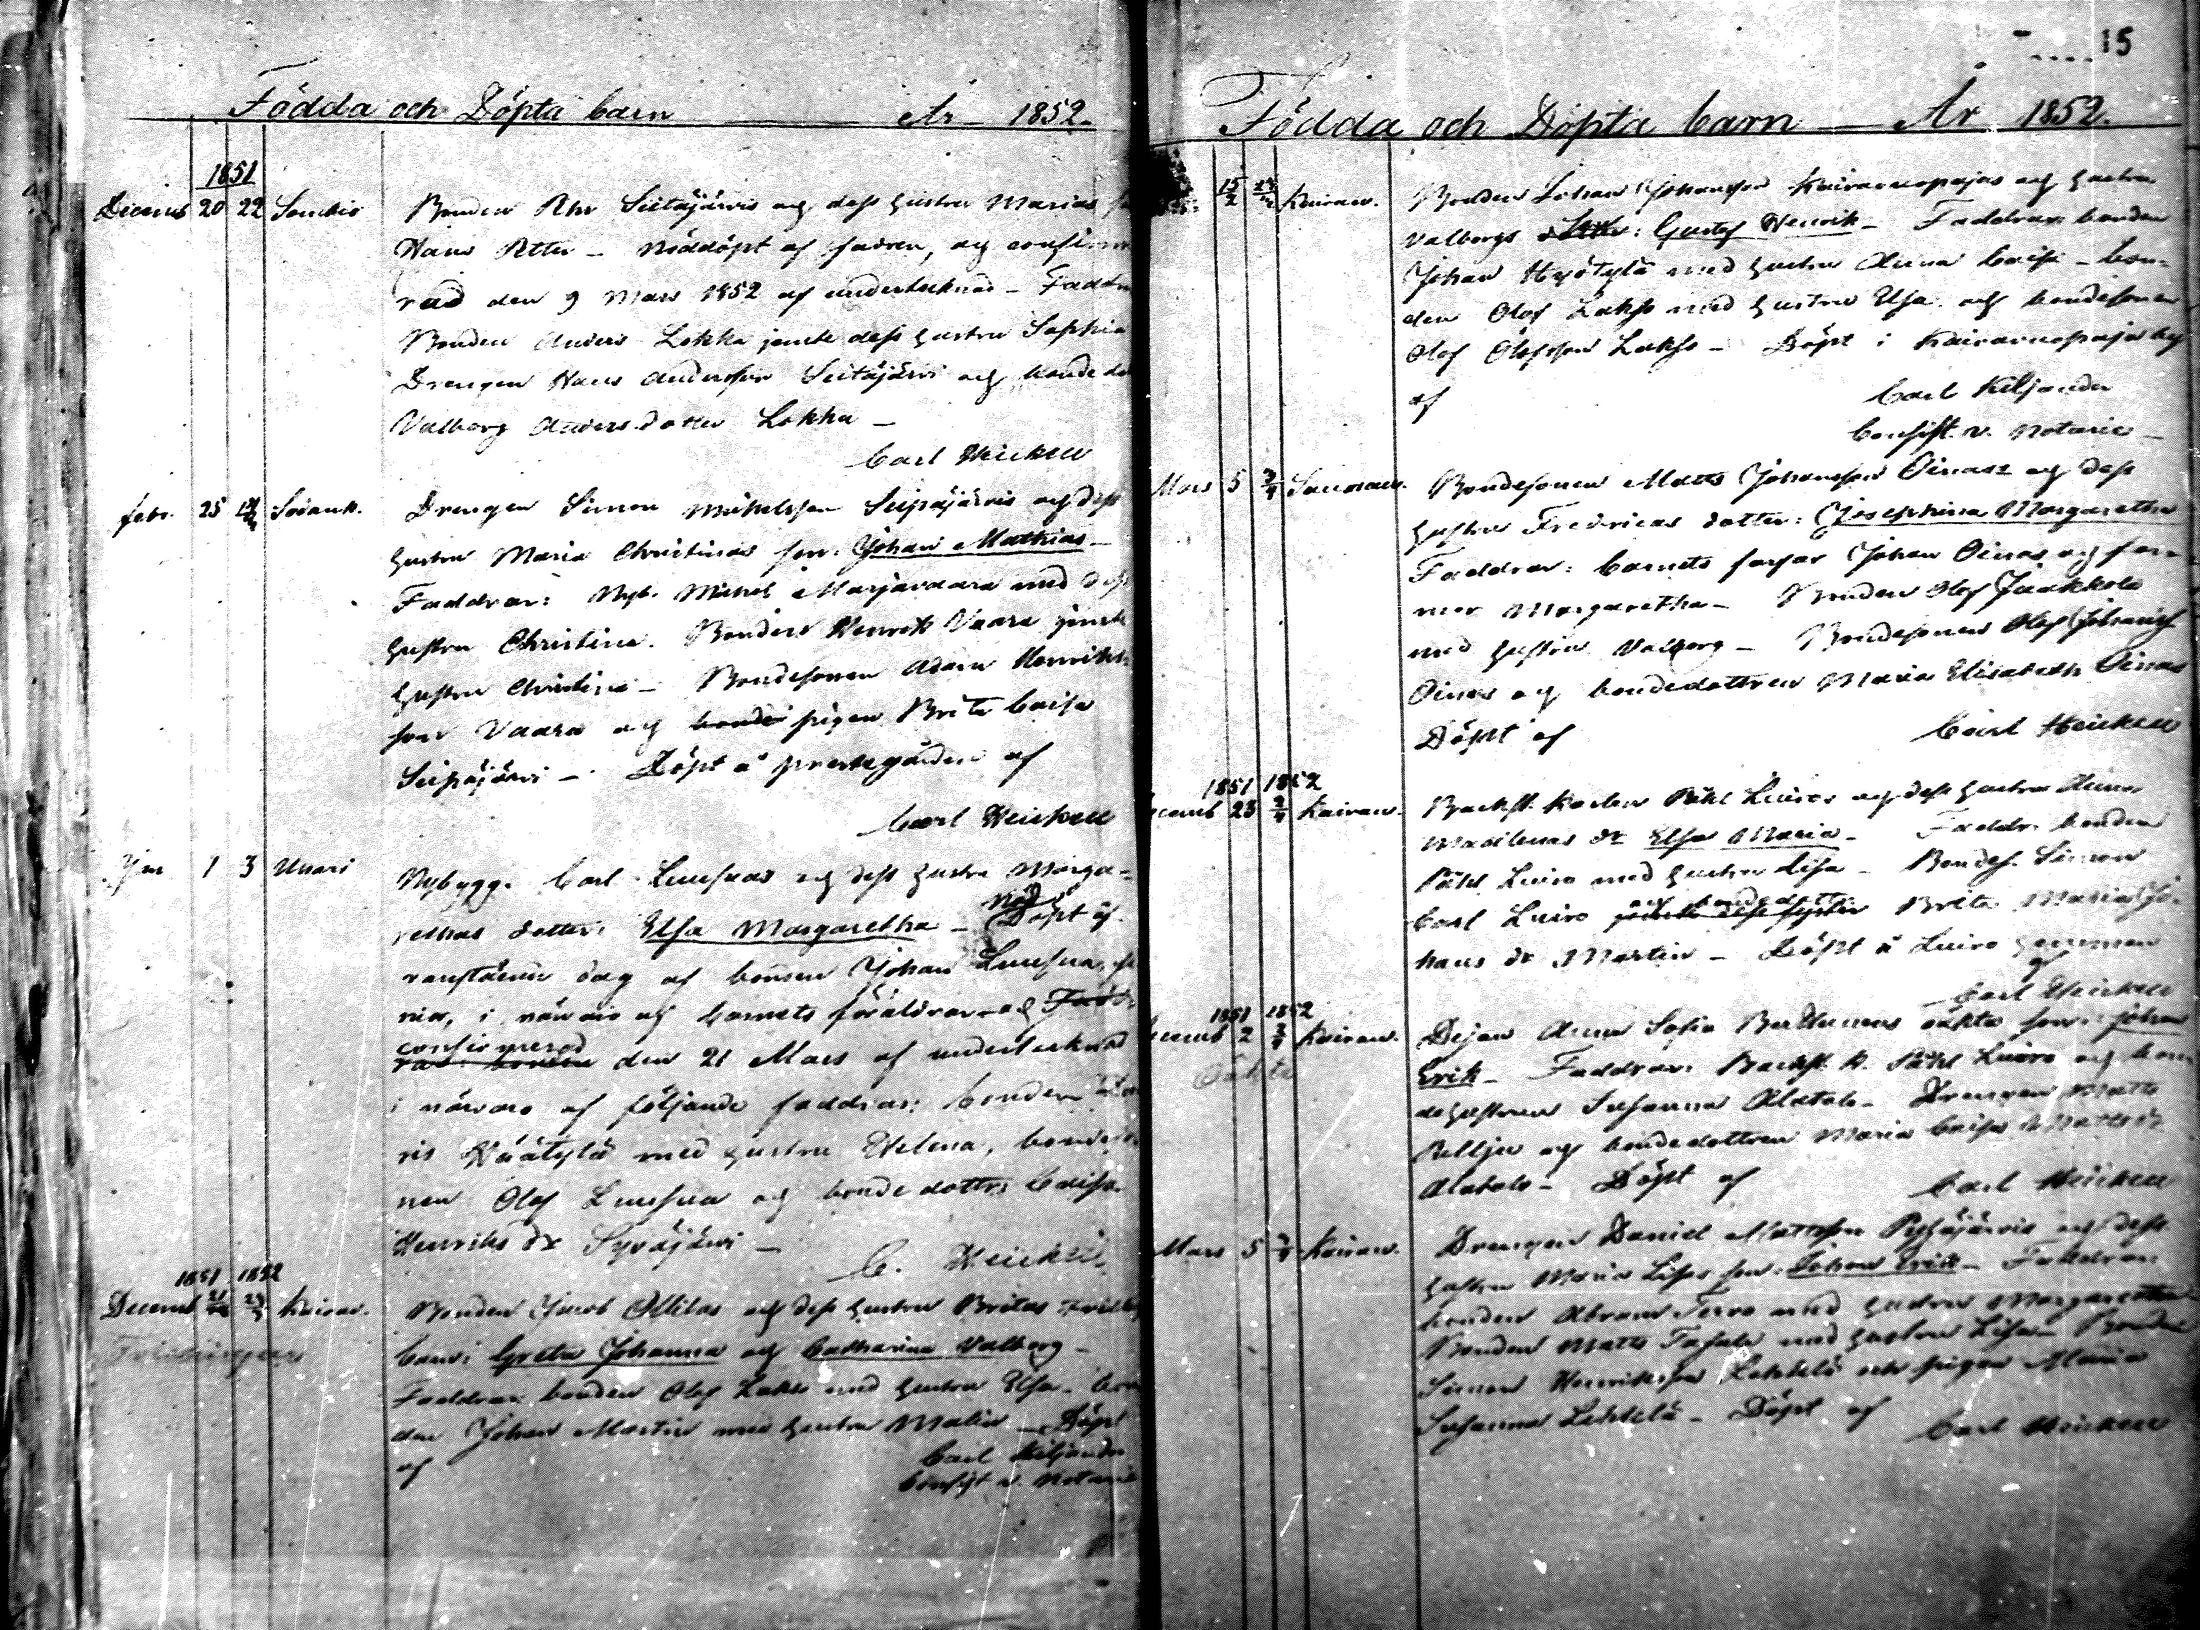 Födda och Döpta barn År 1852.
1851
Decemb 20 22 Sombio Bonden Pehr Seitäjärvis och dess hustru Marias
Hans Petter – Nöddöpt af fadren, och confirme
rad den 9 Mars 1852 af undertecknad – Faddrar
Bonden Anders Lokka jemte dess hustru Sophia
Drengen Hans Andersson Seitäjärvi och bonde
Valborg Andersdotter Lokka –
Carl Heickell
Febr. 25 Sodank. Drengen Simon Michelsson Siipäjärvis och dess
hustru Maria Christinas son: Johan Mathias –
Faddrar: Nyb. Michel Marjavaara med dess
hustru Christina. Bonden Henrik Vaara jemte
hustru Christina – Bondesonen Adam Henriks
son Vaara och pigan Brita Caisa
Siipäjärvi – Döpt å prestegården af
Carl Heickell
Jan 1 3 Unari Nybygg. Carl Luusuas och dess hustru Marga-
rethas dotter: Elsa Margaretha – Nöd Döpt
dag af bonden Johan Luusua,
i närvaro af barnets föräldrar och
confirmerad den 21 Mars af undertecknad
i närvaro af följande faddrar: bonden
Väätylä med hustru Helena, bondeso
nen Olof Luusua och bonde dottr. Caisa
Henriks dr Syväjärvi –
C. Heickell
1851 1852
Decemb Kairav. Bonden Jacob Ollilas och dess hustru Britas tvilling
barn: Greta Johanna och Catharina Valborg –
Faddrar bonden Olof Lakso med hustru Elsa – bon
den Johan Martin med hustru Malin – Döpt
af Carl Kiljander
Consist. n. Notarie
15
Födda och Döpta barn År 1852.
15/2 Kairav. Bonden Johan Johansson Kairavuopajas och hustru
Valborgs Gustaf Henrik – Faddrar bonden
Johan Hyötylä med hustru Anna Caisa – bon-
den Olof Lakso med hustru Elsa och bondesonen
Olof Olofsson Lakso – Döpt i Kairavuopaja by
af Carl Kiljander
Consist. n. Notarie –
Mars 5 Bondesonen Matts Johansson Oinas och dess
hustru Fredricas dotter: Josephina Margaretha
Faddrar: barnets farfar Johan Oinas och far-
mor Margaretha – Bonden Olof Jaakkola
med hustru Valborg – Bondesonen Olof
Oinas och bondedottren Maria Elisabeth Oinas
Döpt af Carl Heickell
1851 1852
Decemb 23 Kairav. Påhl Luiros och dess hustru Anna
Madlenas dr Elsa Maria – Faddr. bonden
Påhl Luiro med hustru Lisa – Bondes. Simon
Carl Luiro Brita Maria Jo-
hans dr Martin – Döpt å Luiro hemman
af
Carl Heickell
1851 1852
Decemb 2 Kairav. Anna Sofia oäkta son: Johan
Oäkta Erik – Faddrar: Påhl Luiro och bon
dehustrun Susanna Alatalo – Drengen Matts
Pelljer och bondedottren Maria Caisa Mattsdr
Alatalo – Döpt af Carl Heickell
Mars 5 Kairav. Drengen Daniel Mattsson Pyhäjärvis och dess
hustru Maria Lisas son: Johan Erik – Faddrar:
bonden Abram med hustru Margaretha
Bonden Matts med hustru Lisa – Bonden
Simon Henriksson och pigan Maria
Susanna – Döpt af
Carl Heickell